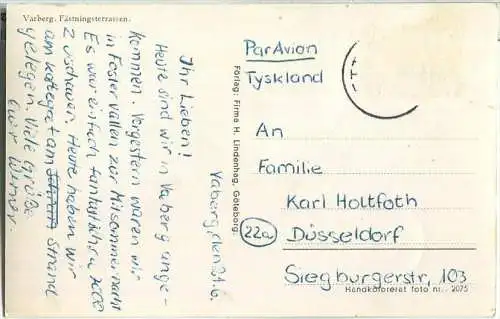 Varberg. Fästningsterrassen.
Vaberg, den 21.6.
Ihr Lieben!
Heute sind wir in Vaberg ange-
kommen. Vorgestern waren wir
in Fostervallen zur Mitsommernacht
Es war einfach fantastisch.
Zuschauer. Heute haben wir
am Strand
gelegen. Viele Grüße
Euer Werner.
Förlag: Firma H. Lindenhag, Göteborg.
Par Avion
Tyskland
An
Familie
Karl Holtfoth
22a Düsseldorf
Siegburgerstr. 103
Handkoloreret foto nr. 2075